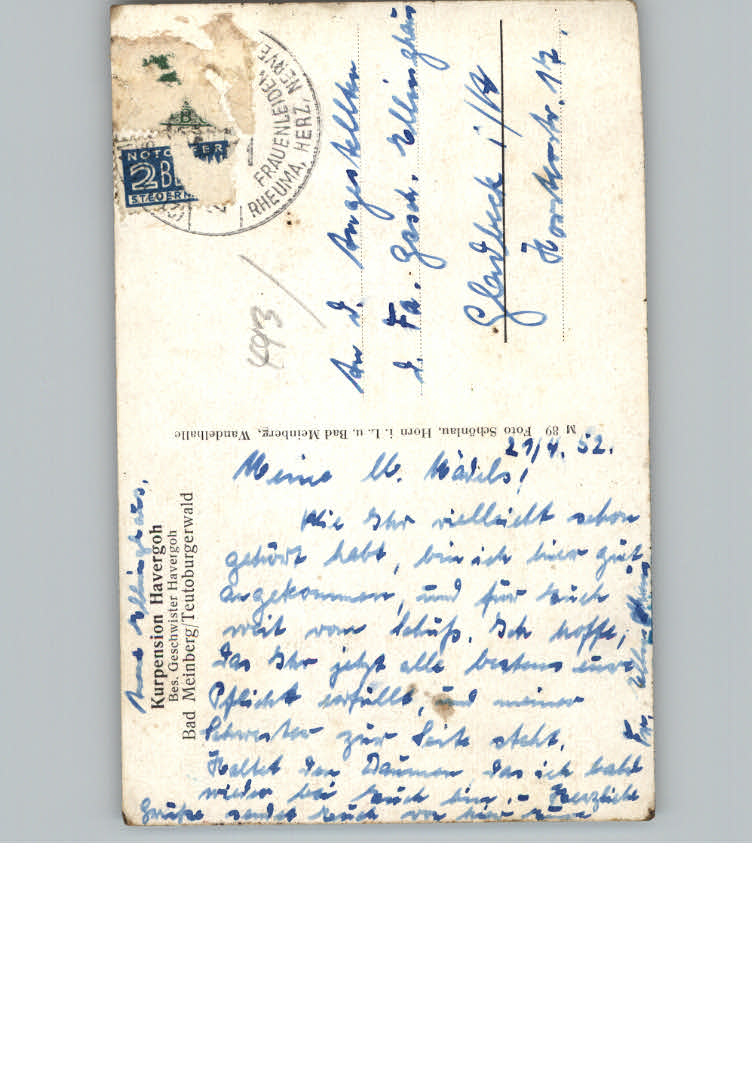 Kurpension Havergoh
Bes. Geschwister Havergoh
Bad Meinberg/Teutoburgerwald
21/4. 52.
Meine lb. Mädels!
Wie Ihr vielleicht schon
gehört habt, bin ich hier gut
angekommen, und für Euch
weit vom Schuß. Ich hoffe,
das Ihr jetzt alle bestens eure
Pflicht erfüllt, und meiner
Schwester zur Seite steht.
Haltet den Daumen, das ich bald
wieder bei Euch bin. - Herzliche
Grüße sendet Euch von hier Eure
Anne Ellinghaus,
M 89 Foto Schönlau, Horn i. L. u. Bad Meinberg, Wandelhalle
An d. Angestellten
d. Fa. Gesch. Ellinghaus
Gladbeck i/W
Horsterstr. 17.
493
FRAUENLEIDEN,
RHEUMA, HERZ, NERVE
NOTOPFER
2 BE
STEUERM